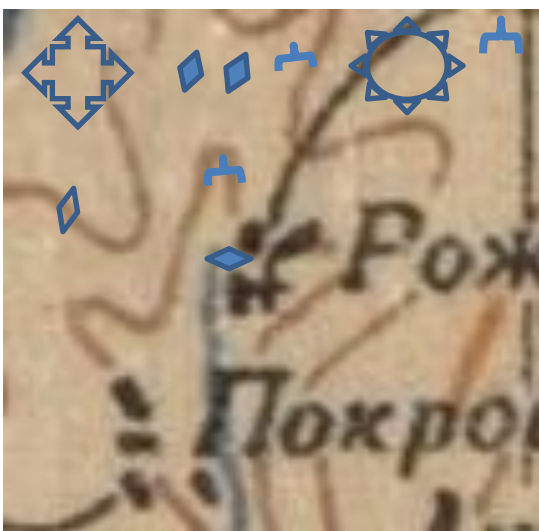 Рож
Покро